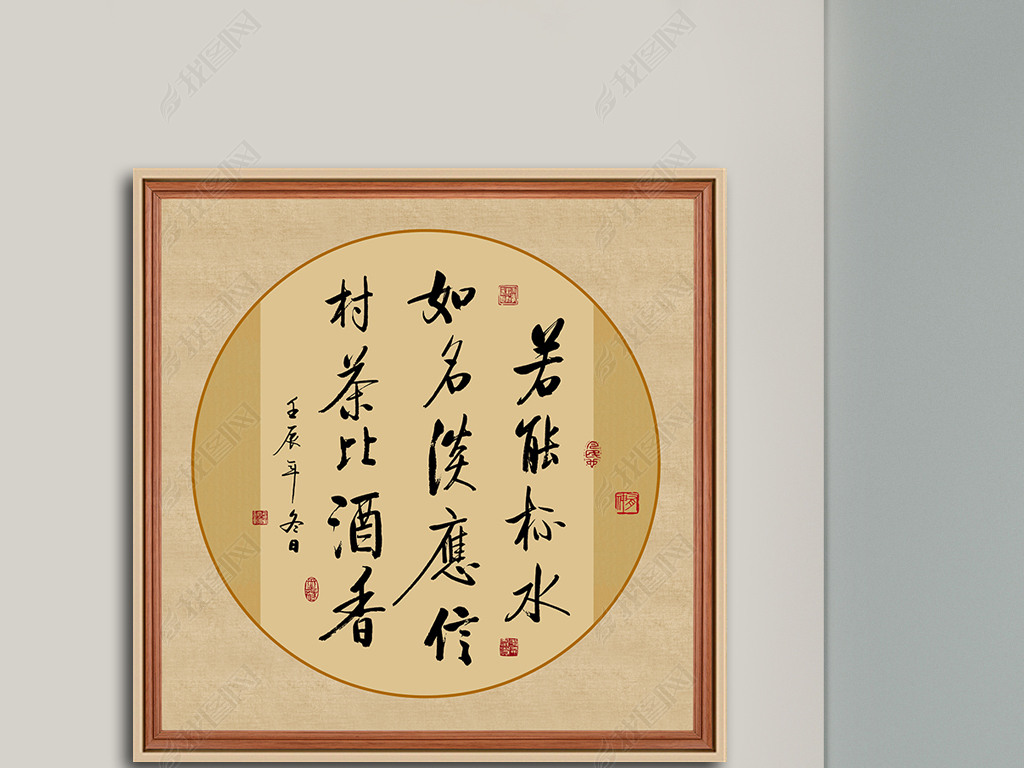 若能杯水
如名淡應信
村茶比酒香
壬辰年冬日